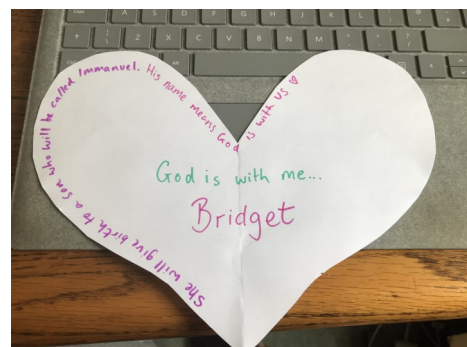 She will give birth to a son who will be called Immanuel. His name means God is with us ♡
God is with me...
Bridget